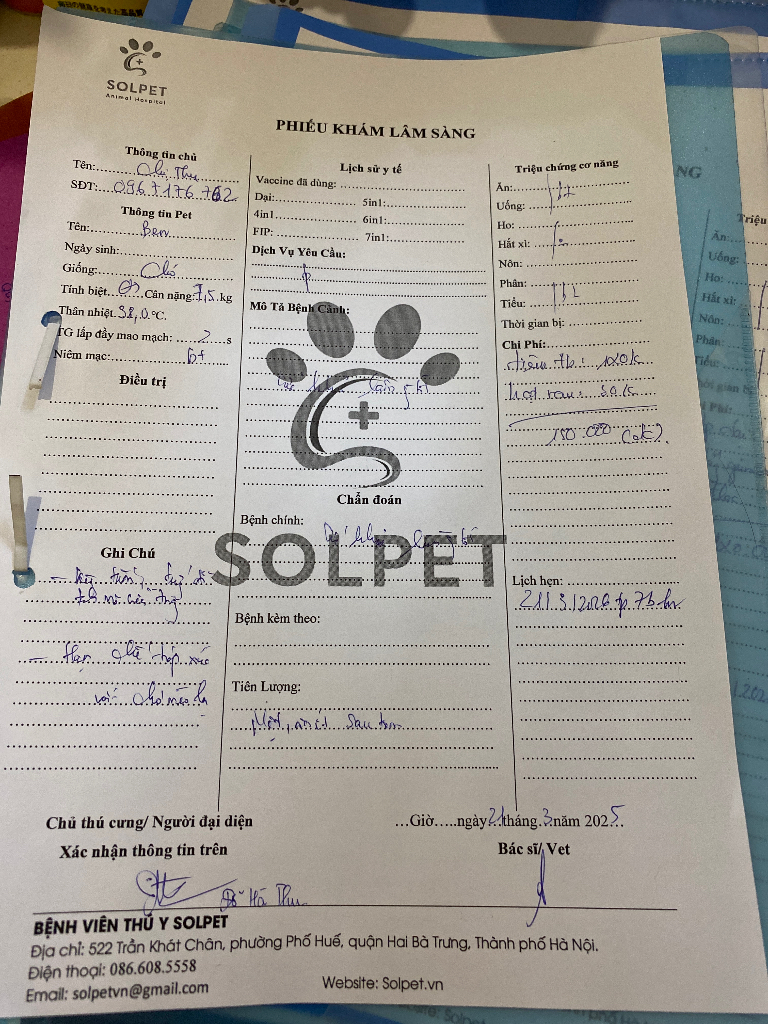 SOLPET
Animal Hospital
PHIẾU KHÁM LÂM SÀNG
Thông tin chủ
Tên: Chị Thu
SĐT: 0967176762
Thông tin Pet
Tên: Ben
Ngày sinh:
Giống: Chó
Tính biệt Cân nặng: 7,5 kg
Thân nhiệt 38,0 °C.
TG lấp đầy mao mạch: 2 s
Niêm mạc: bt
Điều trị
Ghi Chú
- Hạn chế tiếp xúc
với chó mèo lạ
Lịch sử y tế
Vaccine đã dùng:
Dại: 5in1:
4in1 6in1:
FIP: 7in1:
Dịch Vụ Yêu Cầu:
Mô Tả Bệnh Cảnh:
SOLPET
Chẩn đoán
Bệnh chính:
Bệnh kèm theo:
Tiên Lượng:
Mệt, sau tiêm
Triệu chứng cơ năng
Ăn:
Uống:
Ho:
Hắt xì:
Nôn:
Phân:
Tiểu:
Thời gian bị:
Chi Phí:
120k
30k
150.000 (ck)
Lịch hẹn:
21/3/2026
Chủ thú cưng/ Người đại diện
Xác nhận thông tin trên
Đỗ Hà Thu
...Giờ.....ngày 21 tháng 3 năm 2025
Bác sĩ/ Vet
BỆNH VIỆN THÚ Y SOLPET
Địa chỉ: 522 Trần Khát Chân, phường Phố Huế, quận Hai Bà Trưng, Thành phố Hà Nội.
Điện thoại: 086.608.5558
Email: solpetvn@gmail.com
Website: Solpet.vn